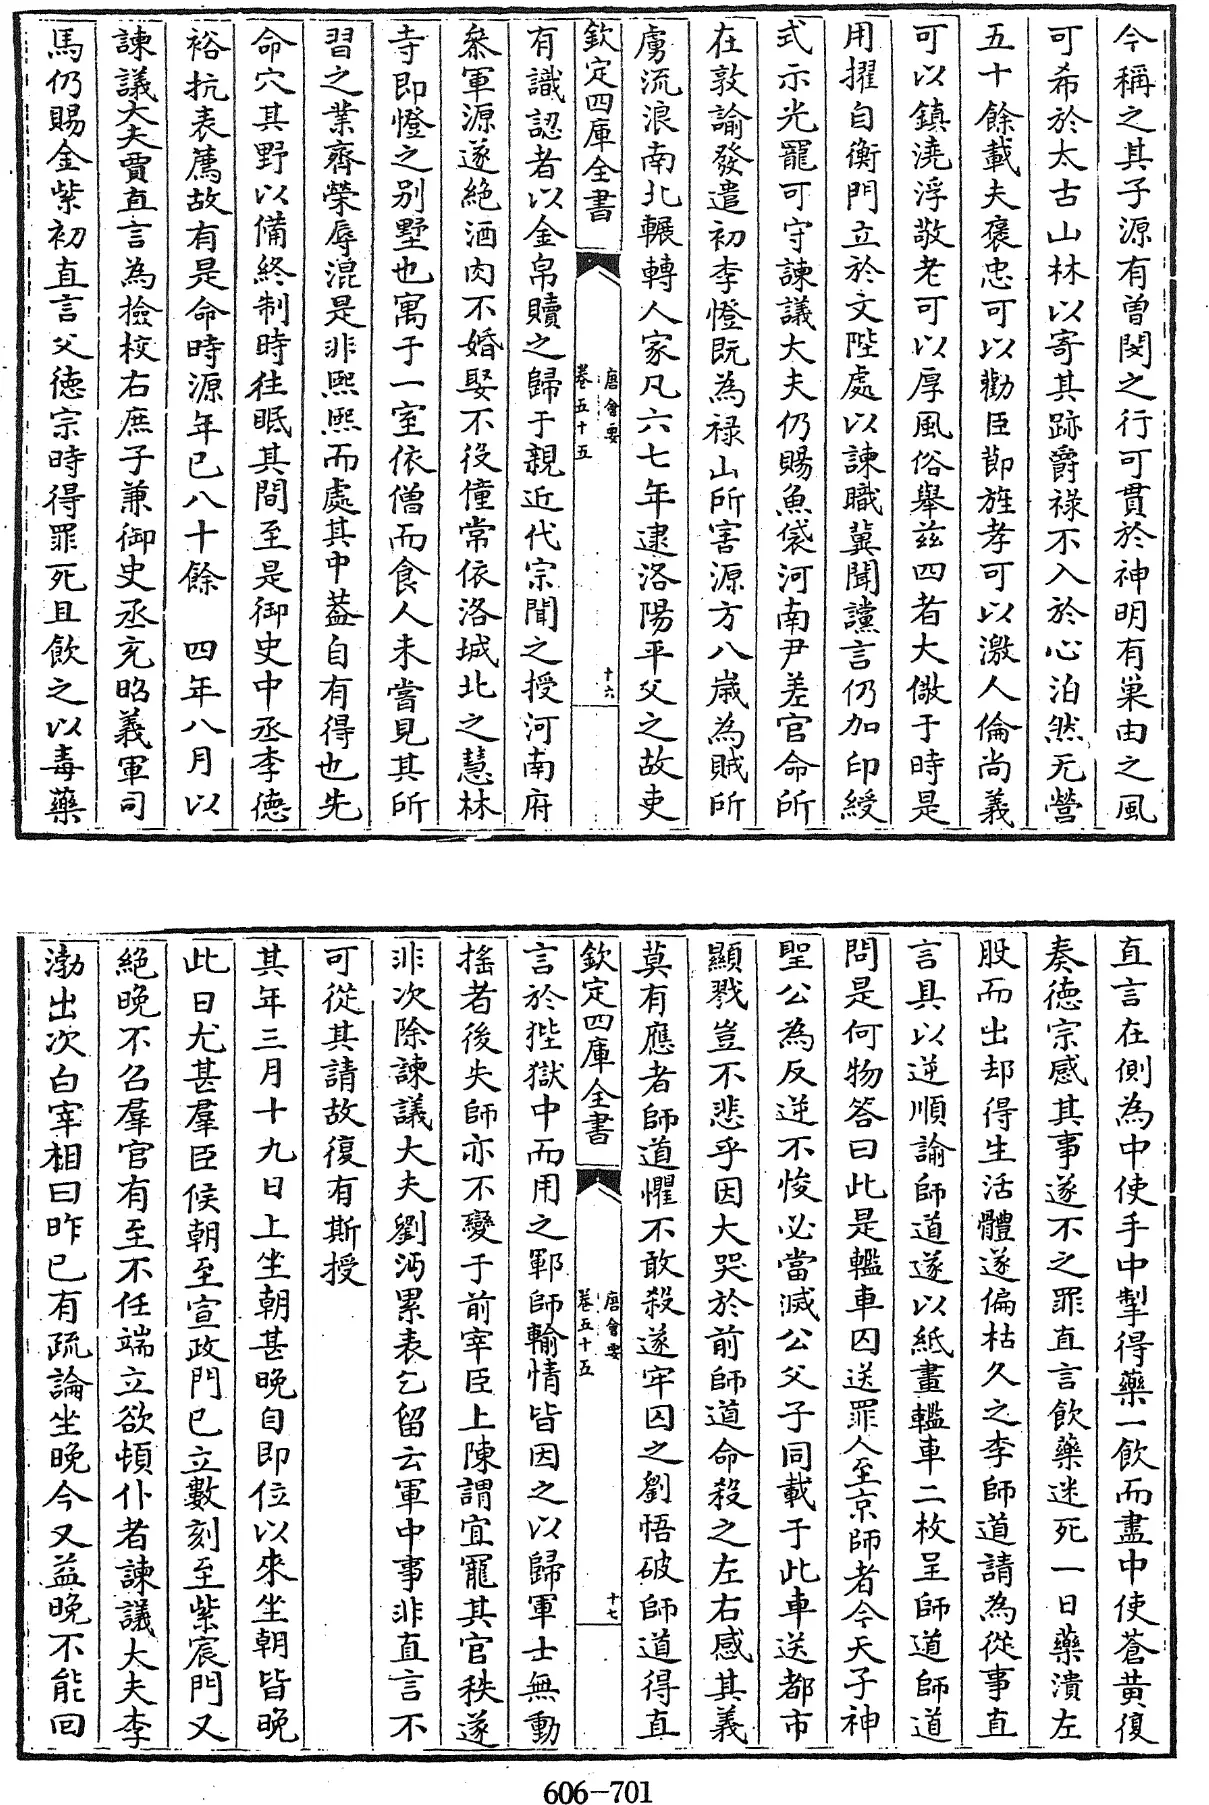 今稱之其子源有曾閔之行可貫於神明有巢由之風
可希於太古山林以寄其跡爵祿不入於心泊然无營
五十餘載夫褒忠可以勸臣節旌孝可以激人倫尚義
可以鎮澆浮敬老可以厚風俗舉茲四者大儆于時是
用擢自衡門立於文陛處以諫職冀聞讜言仍加印綬
式示光寵可守諫議大夫仍賜魚袋河南尹差官命所
在敦諭發遣初李憕既為祿山所害源方八歲為賊所
虜流浪南北輾轉人家凡六七年逮洛陽平父之故吏
欽定四庫全書
唐會要
卷五十五
十六
有識認者以金帛贖之歸于親近代宗聞之授河南府
叅軍源遂絶酒肉不婚娶不役僮常依洛城北之慧林
寺即憕之别墅也寓于一室依僧而食人未嘗見其所
習之業齊榮辱混是非熙熙而處其中葢自有得也先
命穴其野以備終制時往眂其間至是御史中丞李德
裕抗表薦故有是命時源年已八十餘 四年八月以
諫議大夫賈直言為檢校右庶子兼御史丞充昭義軍司
馬仍賜金紫初直言父德宗時得罪死且飲之以毒藥
直言在側為中使手中掣得藥一飲而盡中使蒼黄復
奏德宗感其事遂不之罪直言飲藥迷死一日藥潰左
股而出却得生活體遂偏枯久之李師道請為從事直
言具以逆順諭師道遂以紙畫轞車二枚呈師道師道
問是何物答曰此是轞車囚送罪人至京師者今天子神
聖公為反逆不悛必當滅公父子同載于此車送都市
顯戮豈不悲乎因大哭於前師道命殺之左右感其義
莫有應者師道懼不敢殺遂牢囚之劉悟破師道得直
欽定四庫全書
唐會要
卷五十五
十七
言於狴獄中而用之鄆師輸情皆因之以歸軍士無動
搖者後失師亦不變于前宰臣上陳謂宜寵其官秩遂
非次除諫議大夫劉沔累表乞留云軍中事非直言不
可從其請故復有斯授
其年三月十九日上坐朝甚晚自即位以來坐朝皆晚
此日尤甚羣臣候朝至宣政門已立數刻至紫宸門又
絶晚不召羣官有至不任端立欲頓仆者諫議大夫李
渤出次白宰相曰昨已有疏論坐晚今又益晚不能回
606-701